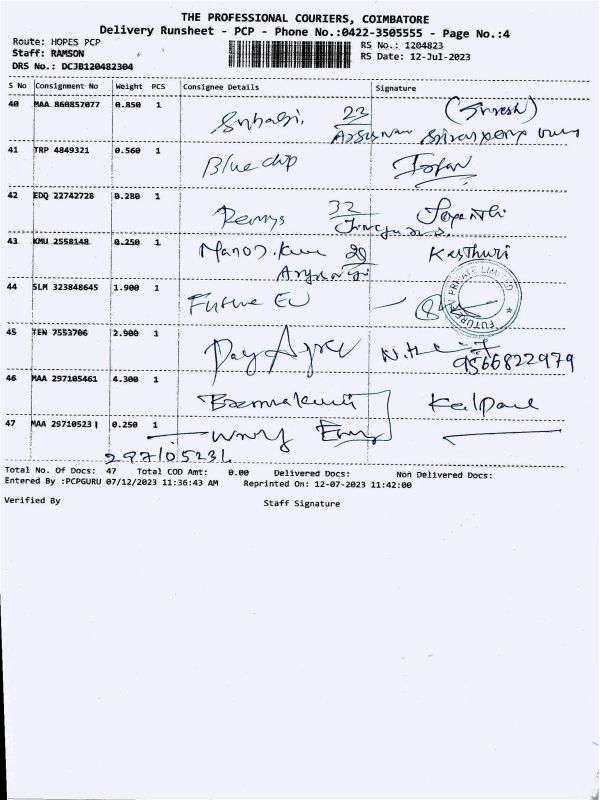 THE PROFESSIONAL COURIERS, COIMBATORE
Delivery Runsheet - PCP - Phone No.:0422-3505555 - Page No.:4
Route: HOPES PCP RS No.: 1204823
Staff: RAMSON RS Date: 12-Jul-2023
DRS No.: DCJB120482304
S No Consignment No Weight PCS Consignee Details Signature
40 MAA 860857077 0.850 1 23 (Suresh)
41 TRP 4849321 0.560 1 Blue chip Irfan
42 EDQ 22742728 0.280 1 32
43 KMU 2558148 0.250 1 Manoj.Kum 29 Kasthuri
44 SLM 323848645 1.900 1 Future EV
PRIVATE LIMITED FUTURE
45 TEN 7553706 2.900 1 9566822979
46 MAA 297105461 4.300 1
47 MAA 29710523 1 0.250 1
297105231
Total No. Of Docs: 47 Total COD Amt: 0.00 Delivered Docs: Non Delivered Docs:
Entered By :PCPGURU 07/12/2023 11:36:43 AM Reprinted On: 12-07-2023 11:42:00
Verified By Staff Signature